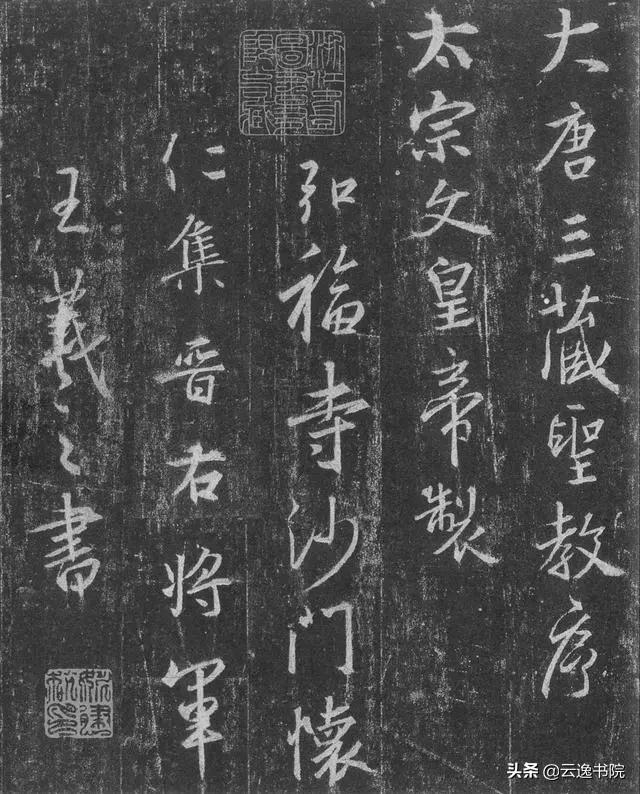 大唐三藏聖教序
太宗文皇帝製
弘福寺沙門懷
仁集晋右将軍
王羲之書
头条 @云逸书院